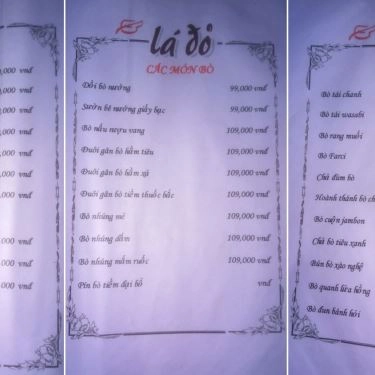 ,000 vnđ
,000 vnđ
,000 vnđ
,000 vnđ
,000 vnđ
,000 vnđ
,000 vnđ
,000 vnđ
,000 vnđ
,000 vnđ
lá đỏ
CÁC MÓN BÒ
Dồi bò nướng 99,000 vnđ
Sườn bê nướng giấy bạc 99,000 vnđ
Bò nấu nượu vang 109,000 vnđ
Đuôi gân bò hầm tiêu 109,000 vnđ
Đuôi gân bò hầm xả 109,000 vnđ
Đuôi gân bò tiềm thuốc bắc 109,000 vnđ
Bò nhúng mẻ 109,000 vnđ
Bò nhúng dấm 109,000 vnđ
Bò nhúng mắm ruốc 109,000 vnđ
Pín bò tiềm đại bổ vnđ
Bò tái chanh
Bò tái wasabi
Bò rang muối
Bò Farci
Chả đùm bò
Hoành thánh bò ch
Bò cuộn jambon
Chả bò tiêu xanh
Bún bò xào nghệ
Bò quanh lửa hồng
Bò đun bánh hỏi